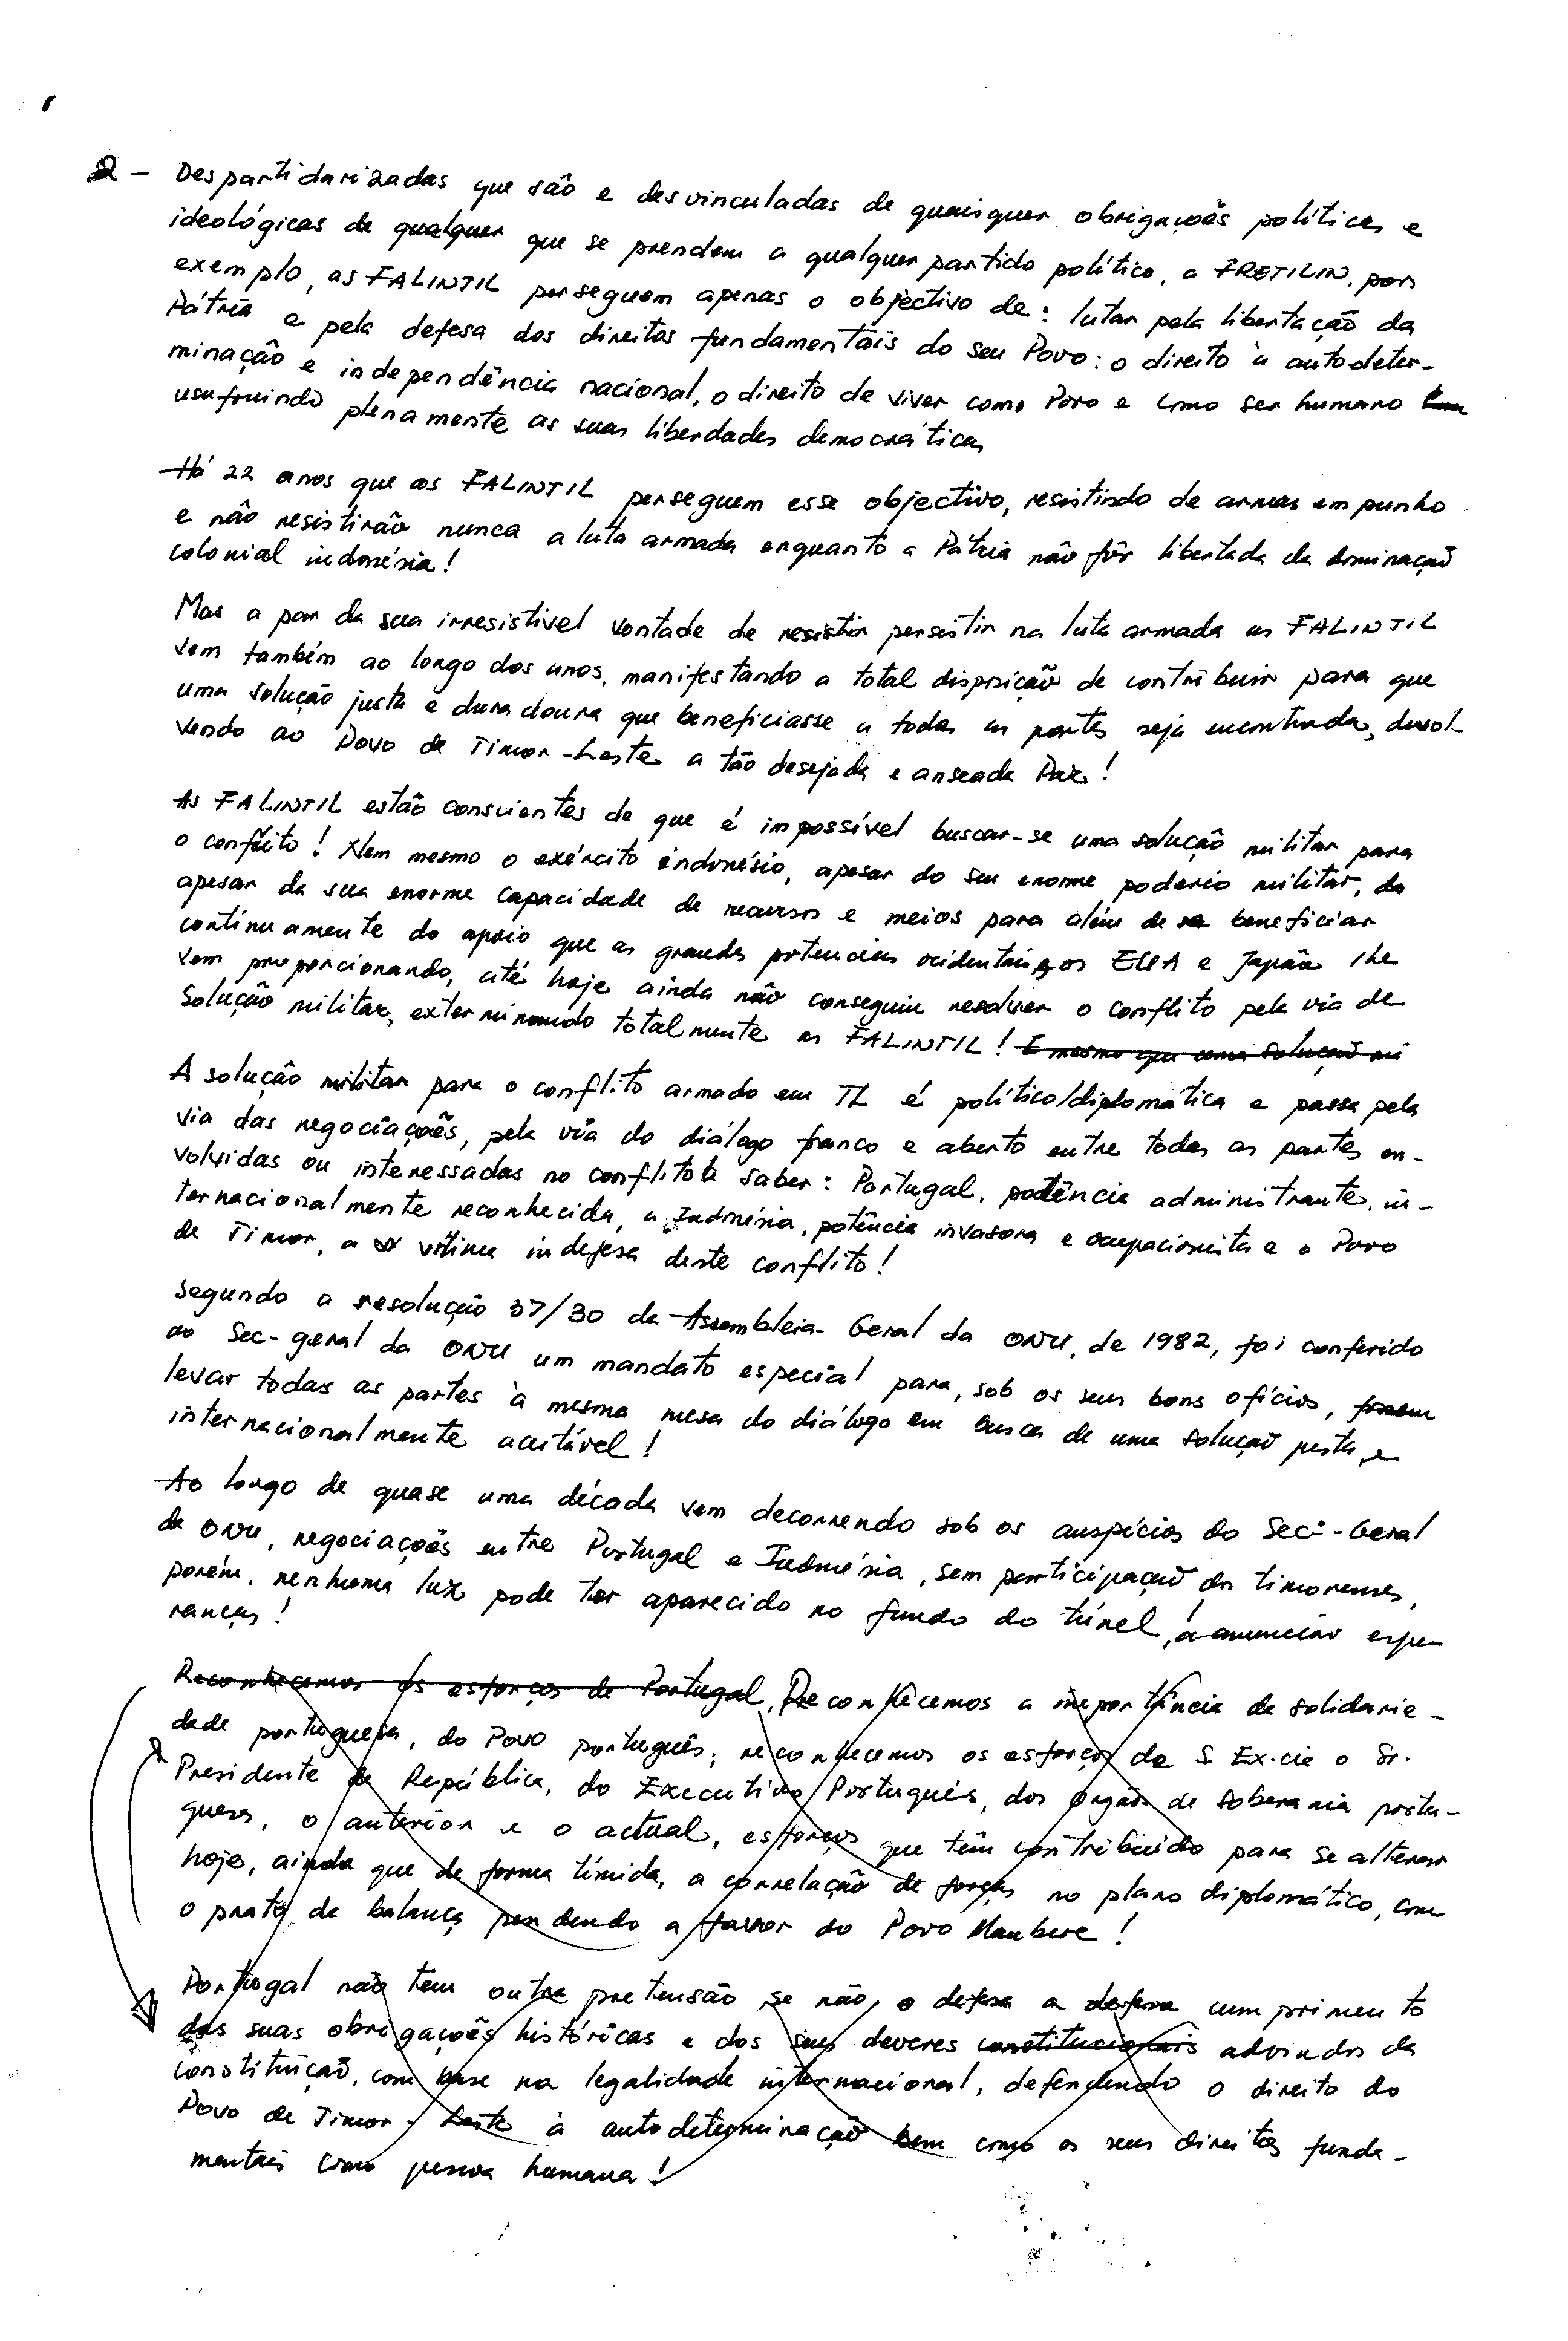 2 - Despartidarizadas que são e desvinculadas de quaisquer obrigações políticas e
ideológicas de qualquer que se prendem a qualquer partido político, a FRETILIN, por
exemplo, as FALINTIL perseguem apenas o objectivo de: lutar pela libertação da
Pátria e pela defesa dos direitos fundamentais do seu Povo: o direito à autodeter-
minação e independência nacional, o direito de viver como Povo e como ser humano
usufruindo plenamente as suas liberdades democráticas
Há 22 anos que as FALINTIL perseguem esse objectivo, resistindo de armas em punho
e não resistirão nunca a luta armada enquanto a Pátria não fôr libertada da dominação
colonial indonésia!
Mas a par da sua irresistível vontade de resistir persistir na luta armada as FALINTIL
vem também ao longo dos anos, manifestando a total disposição de contribuir para que
uma solução justa e duradoura que beneficiasse a todas as partes seja encontrada, devol-
vendo ao Povo de Timor-Leste a tão desejada e anseada Paz!
As FALINTIL estão conscientes de que é impossível buscar-se uma solução militar para
o conflito! Nem mesmo o exército indonésio, apesar do seu enorme poderio militar, da
apesar da sua enorme capacidade de recursos e meios para além de se beneficiar
continuamente do apoio que as grandes potencias ocidentais, os EUA e Japão lhe
vem proporcionando, até hoje ainda não conseguiu resolver o conflito pela via de
solução militar, exterminando totalmente as FALINTIL! E mesmo que uma solução mi
A solução militar para o conflito armado em TL é político/diplomática e passa pela
via das negociações, pela via do diálogo franco e aberto entre todas as partes en-
volvidas ou interessadas no conflito a saber: Portugal, potência administrante, in-
ternacionalmente reconhecida, a Indonésia, potência invasora e ocupacionista e o Povo
de Timor, a vítima indefesa deste conflito!
Segundo a resolução 37/30 da Assembleia-Geral da ONU, de 1982, foi conferido
ao Sec-geral da ONU um mandato especial para, sob os seus bons ofícios,
levar todas as partes à mesma mesa do diálogo em busca de uma solução justa e
internacionalmente aceitável!
Ao longo de quase uma década vem decorrendo sob os auspícios do Sec-Geral
da ONU, negociações entre Portugal e Indonésia, sem participação dos timorenses,
porém, nenhuma luz pode ter aparecido no fundo do túnel, a anunciar espe-
ranças!
Reconhecemos os esforços de Portugal, Reconhecemos a importância da solidarie-
dade portuguesa, do Povo português; reconhecemos os esforços de S. Ex.cia o Sr.
Presidente da República, do Executivo Português, dos orgãos de soberania portu-
guesa, o anterior e o actual, esforços que têm contribuido para se alterar
hoje, ainda que de forma tímida, a correlação de forças no plano diplomático, com
o prato da balança pendendo a favor do Povo Maubere!
Portugal não tem outra pretensão se não, o defesa a defesa cumprimento
das suas obrigações históricas e dos seus deveres constitucionais advindos da
constituição, com base na legalidade internacional, defendendo o direito do
Povo de Timor-Leste à autodeterminação bem como os seus direitos funda-
mentais como pessoa humana!